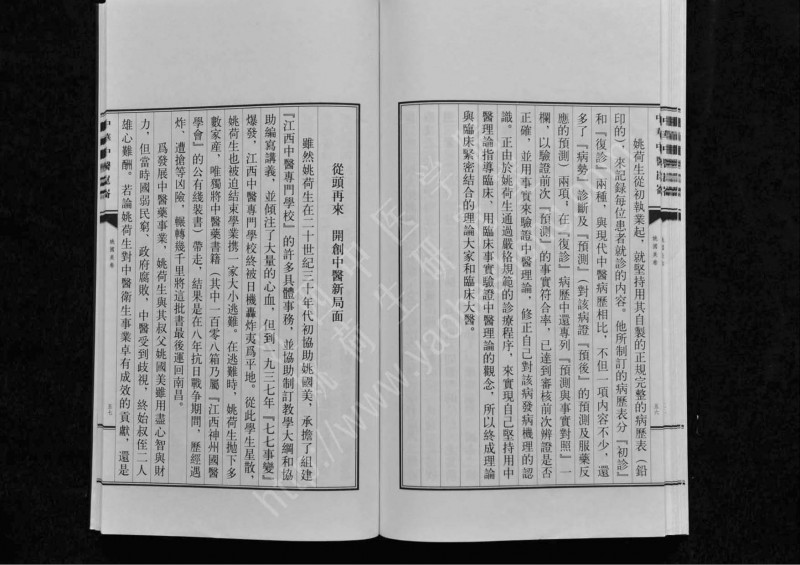 姚荷生從初執業起，就堅持用其自製的正規完整的病歷表（鉛
印的），來記録每位患者就診的内容。他所制訂的病歷表分『初診』
和『復診』兩種，與現代中醫病歷相比，不但一項内容不少，還
多了『病勢』診斷及『預測』（對該病證『預後』的預測及服藥反
應的預測）兩項，在『復診』病歷中還專列『預測與事實對照』一
欄，以驗證前次『預測』的事實符合率，已達到審核前次辨證是否
正確，並用事實來驗證中醫理論，修正自己對該病發病機理的認
識。正由於姚荷生通過嚴格規範的診療程序，來實現自己堅持用中
醫理論指導臨床、用臨床事實驗證中醫理論的觀念，所以終成理論
與臨床緊密結合的理論大家和臨床大醫。
姚國美卷
五六
從頭再來　開創中醫新局面
雖然姚荷生在二十世紀三十年代初協助姚國美，承擔了組建
『江西中醫專門學校』的許多具體事務，並協助制訂教學大綱和協
助編寫講義，並傾注了大量的心血，但到一九三七年『七七事變』
爆發，江西中醫專門學校終被日機轟炸夷爲平地。從此學生星散，
姚荷生也被迫結束學業携一家大小逃難。在逃難時，姚荷生抛下多
數家産，唯獨將中醫藥書籍（其中一百零八箱乃屬『江西神州國醫
學會』的公有綫裝書）帶走，結果是在八年抗日戰争期間，歷經遇
炸、遭搶等凶險，輾轉幾千里將這批書最後運回南昌。
爲發展中醫藥事業，姚荷生與其叔父姚國美雖用盡心智與財
力，但當時國弱民窮、政府腐敗，中醫受到歧視，終始叔侄二人
雄心難酬。若論姚荷生對中醫衛生事業卓有成效的貢獻，還是
姚國美卷
五七